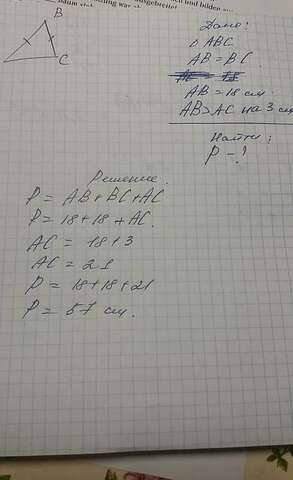 B
C
Дано:
△ ABC
AB = BC
AB = 18 см
AB > AC на 3 см
Найти:
P - ?
Решение.
P = AB + BC + AC
P = 18 + 18 + AC.
AC = 18 + 3
AC = 21
P = 18 + 18 + 21
P = 57 см.